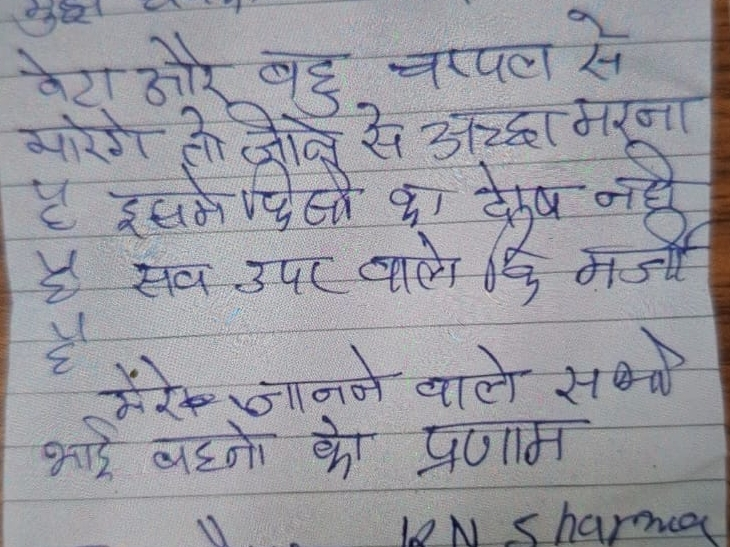 बेटा और बहु चप्पल से
मारेगे तो जीने से अच्छा मरना
है इसमे किसी का दोष नही
है सब उपर वाले कि मर्जी
है
मेरे जानने वाले सभी
भाई बहनो को प्रणाम
RN Sharma